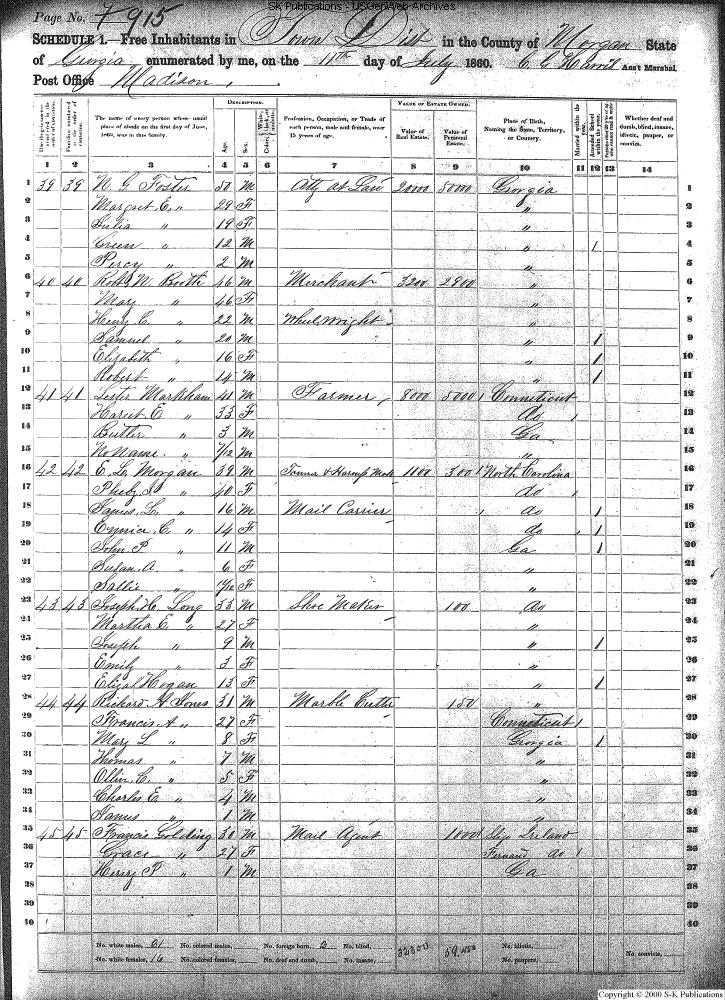 SK Publications - USGenWeb Archives
Page No. 7 915
SCHEDULE 1.—Free Inhabitants in Town Dist in the County of Morgan State
of Georgia enumerated by me, on the 11th day of July 1860. Ass't Marshal.
Post Office Madison.
DESCRIPTION. VALUE OF ESTATE OWNED.
Dwelling-houses numbered in the order of visitation. Families numbered in the order of visitation. The name of every person whose usual place of abode on the first day of June, 1860, was in this family. Age. Sex. Color, White, black, or mulatto. Profession, Occupation, or Trade of each person, male and female, over 15 years of age. Value of Real Estate. Value of Personal Estate. Place of Birth, Naming the State, Territory, or Country. Married within the year. Attended School within the year. Whether deaf and dumb, blind, insane, idiotic, pauper, or convict.
1 2 3 4 5 6 7 8 9 10 11 12 13 14
1 39 39 N. G Foster 50 M Atty at Law 20000 5000 Georgia 1
2 Margret E. " 29 F " 2
3 Julia " 19 F " 3
4 Green " 12 M " 1 4
5 Percy " 2 M " 5
6 40 40 Robt W. Booth 46 M Merchant 3200 2900 " 6
7 Mary " 46 F " 7
8 Henry C. " 22 M Wheel wright " 8
9 Samuel " 20 M " 1 9
10 Elizabeth " 16 F " 1 10
11 Robert " 14 M " 1 11
12 41 41 Lester Markham 41 M Farmer 8000 5000 Connecticut 12
13 Hariet E " 33 F do 13
14 Butler " 3 M Ga 14
15 No Name " 7/12 M " 15
16 42 42 E. L. Morgan 39 M Tanner & Harness Mak 1100 300 North Carolina 16
17 Pheby " 40 F do 17
18 James L. " 16 M Mail Carrier do 1 18
19 C. " 14 F do 1 19
20 John P " 11 M Ga 1 20
21 Susan A. " 6 F " 21
22 Sallie " F " 22
23 43 43 Joseph C. Long 33 M Shoe Maker 100 do 23
24 Martha E " 27 F " 24
25 Joseph " 9 M " 1 25
26 Emily " 3 F " 26
27 Elizah Hogan 13 F " 1 27
28 44 44 Richard A Jones 31 M Marble Cutter 150 " 28
29 Francis A " 27 F Connecticut 29
30 Mary L " 8 F Georgia 1 30
31 Thomas " 7 M " 31
32 Olliv. C. " 5 F " 32
33 Charles E " 4 M " 33
34 James " 1 M " 34
35 45 45 Francis Golding 30 M Mail Agent 1000 Ireland 35
36 Grace " 27 F do 36
37 Henry P " 1 M Ga 37
38 38
39 39
40 40
No. white males, 21 No. colored males, No. foreign born, 2 No. blind, No. idiotic, No. convicts,
No. white females, 16 No. colored females, No. deaf and dumb, No. insane, No. paupers,
Copyright © 2000 S-K Publications